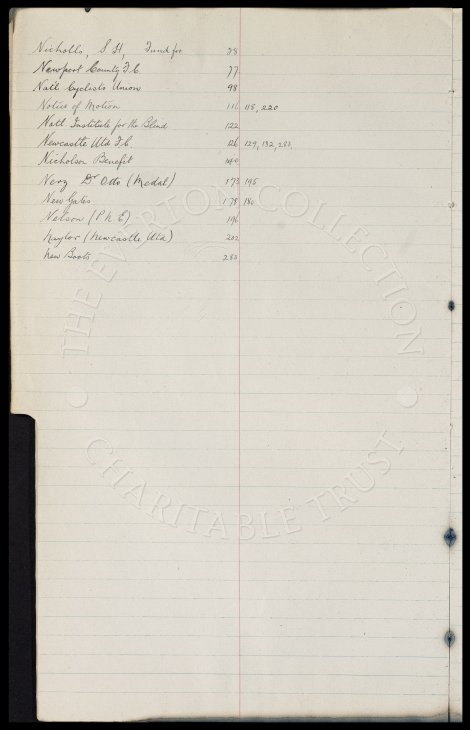 Nicholls, S H, Fund for 28
Newport County F.C. 77
Natl Cyclists Union 98
Notice of Motion 116 118, 220
Natl. Institute for the Blind 122
Newcastle Utd F.C. 126 129, 132, 283,
Nicholson Benefit
Nerz Dr Otto (Medal) 173 195
New Gates 178 180
Nelson (P.N.E) 196
Naylor (Newcastle Utd) 202
New Boots 280
THE EVERTON COLLECTION
CHARITABLE TRUST